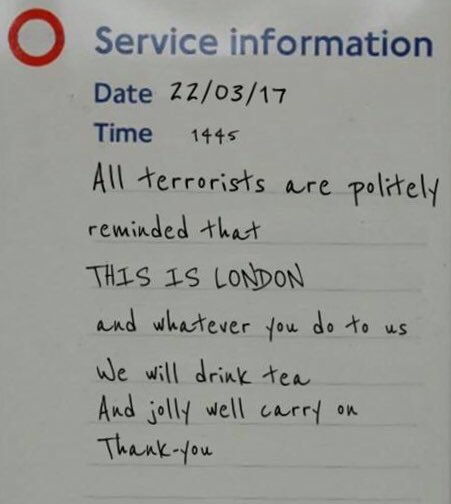 Service information
Date 22/03/17
Time 1445
All terrorists are politely
reminded that
THIS IS LONDON
and whatever you do to us
We will drink tea
And jolly well carry on
Thank-you